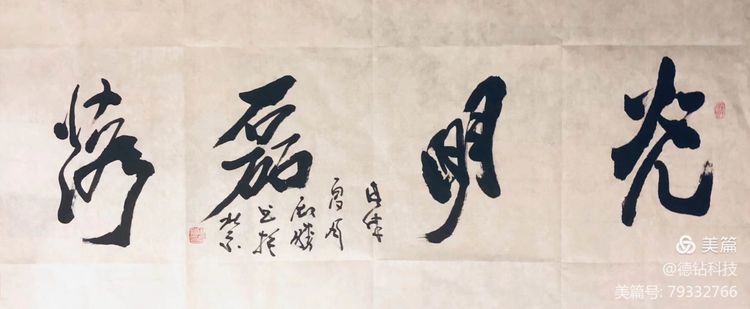 光明磊落
夏月
北京
美篇
@德钻科技
美篇号: 79332766